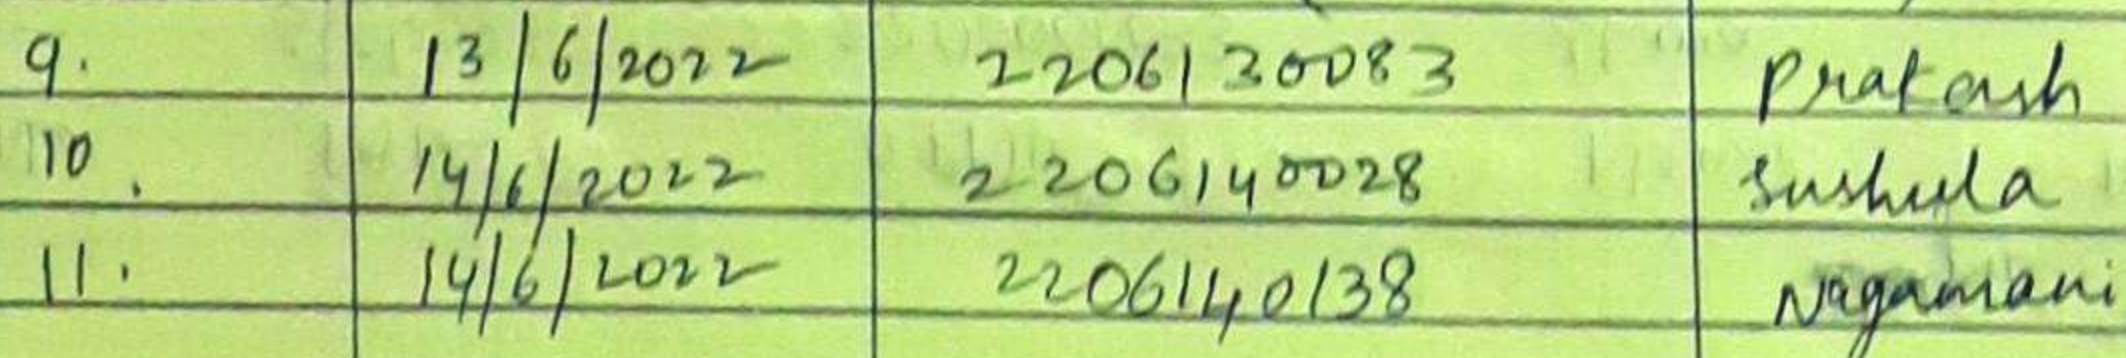 9. 13/6/2022 2206130083 Prakash
10. 14/6/2022 2206140028 Susheela
11. 14/6/2022 2206140138 Nagamani